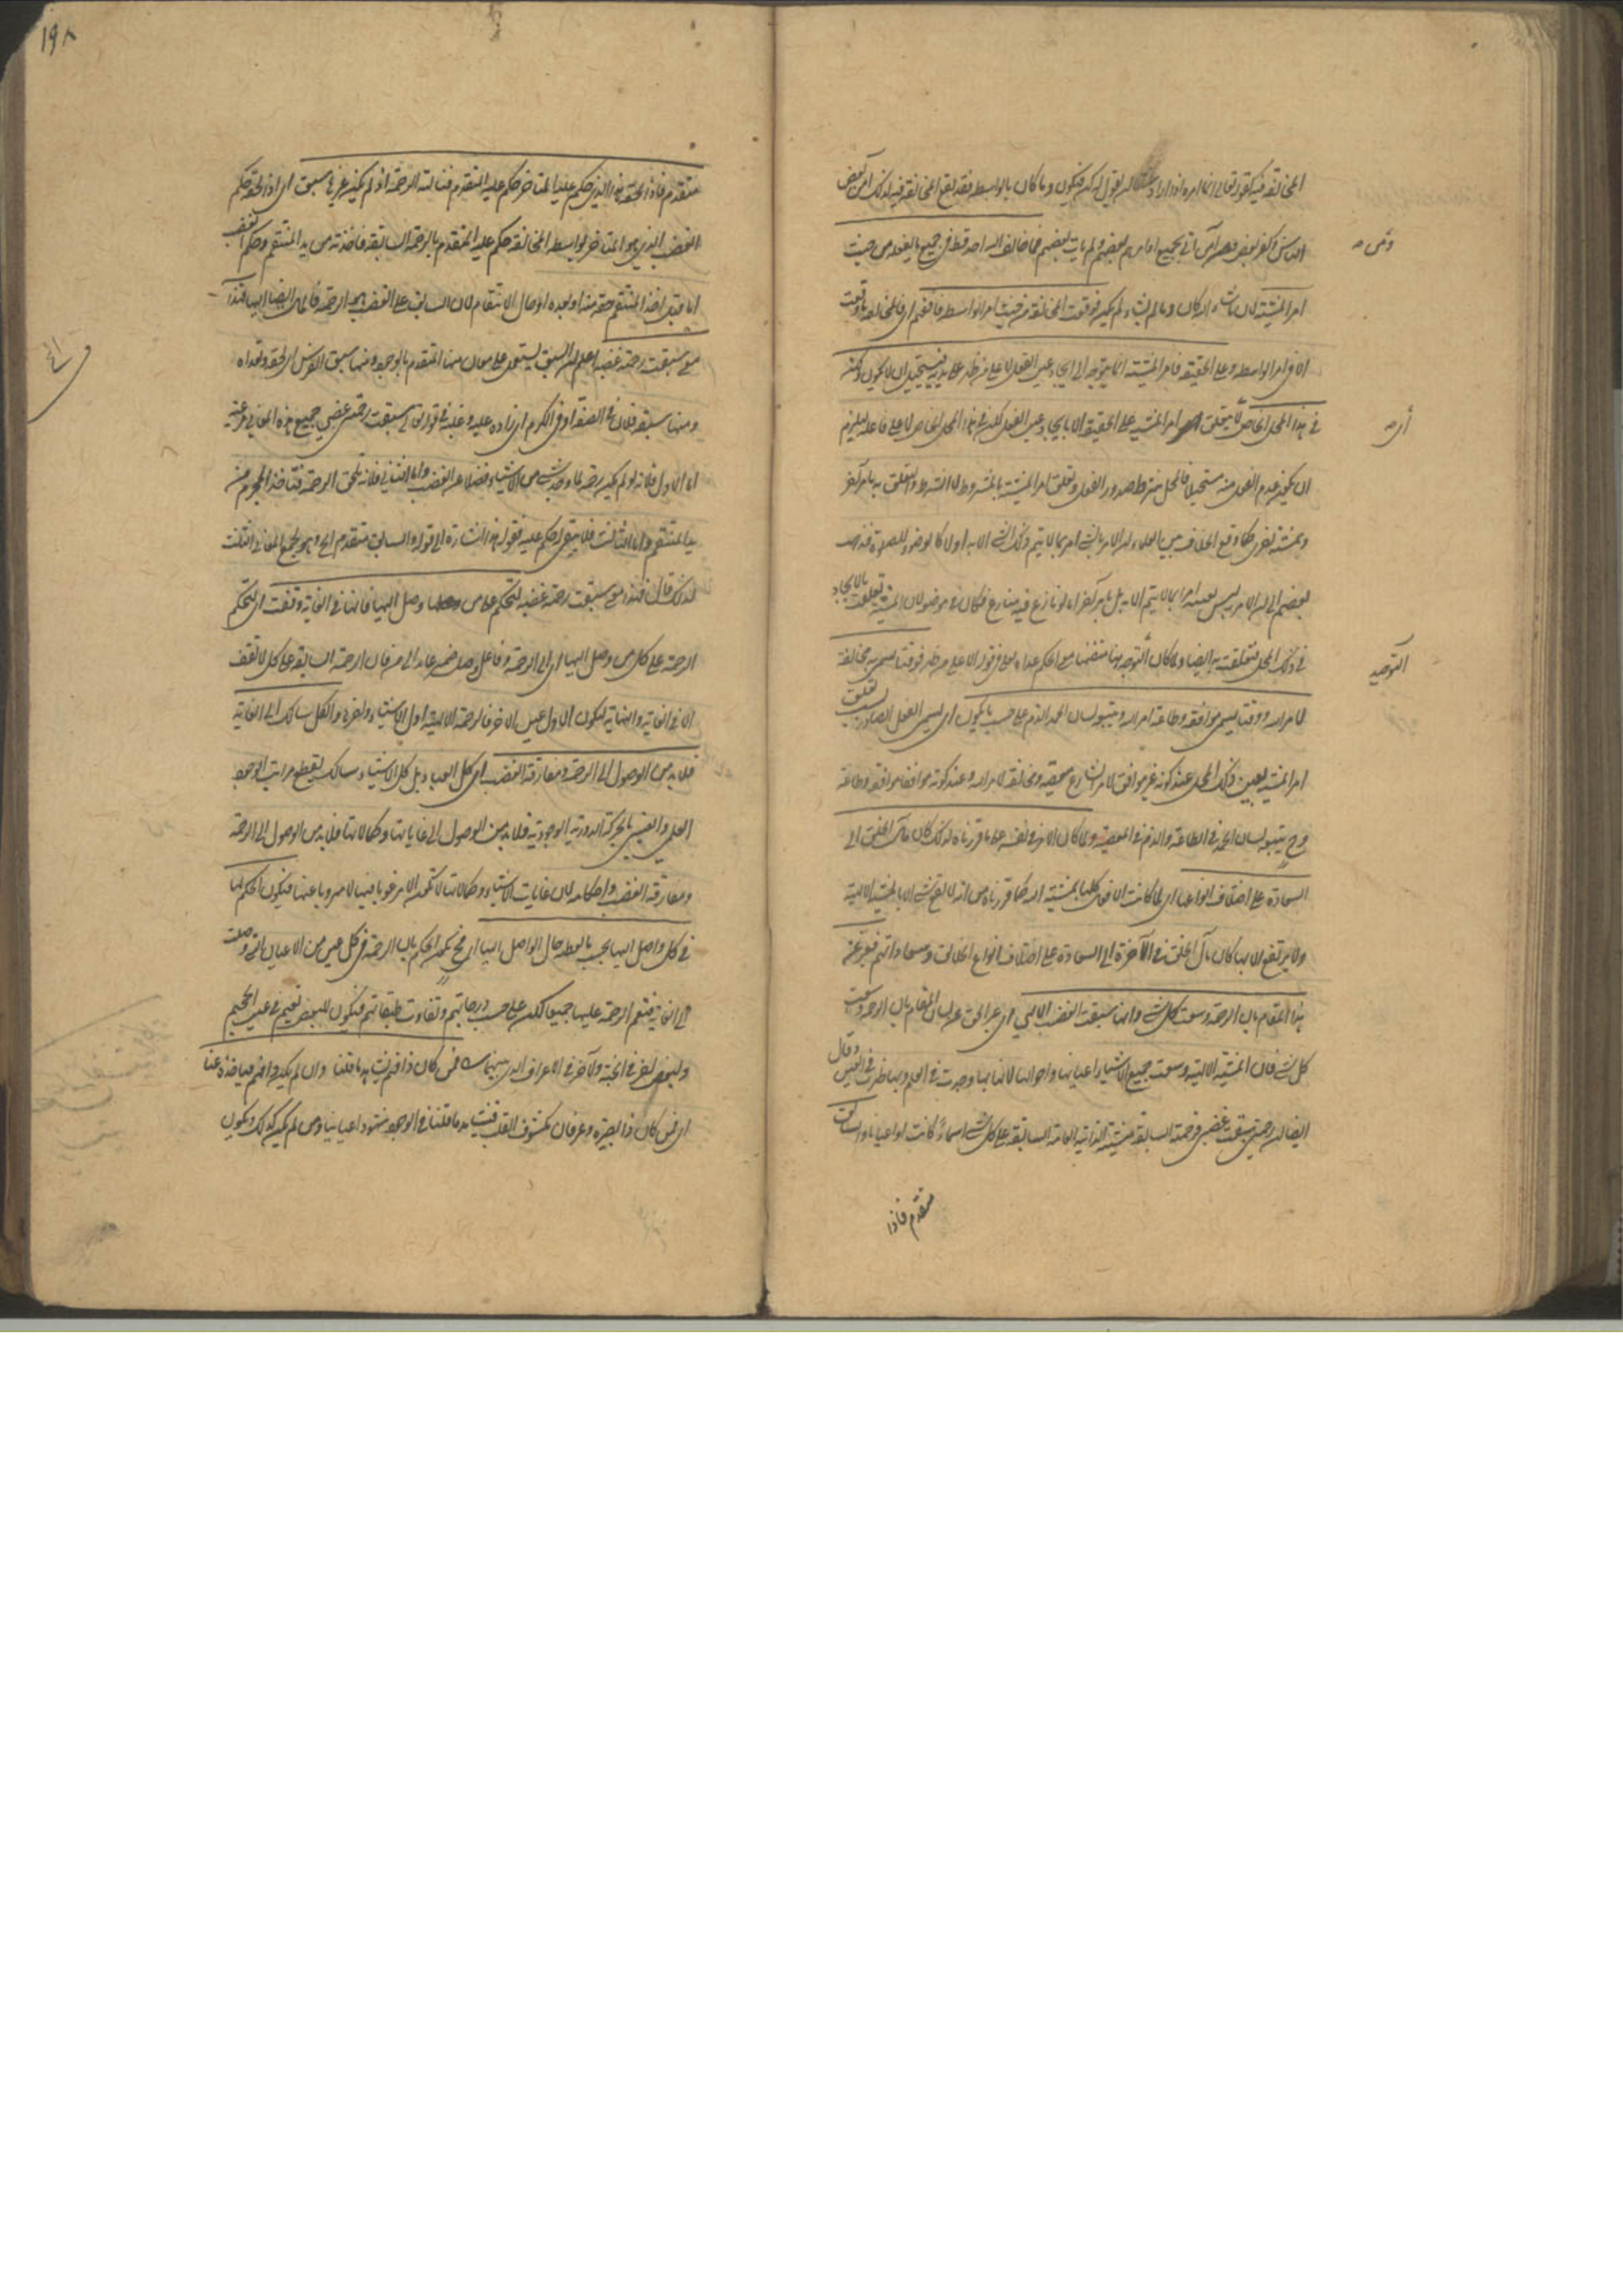 المخالفة فيه كقوله تعالى انما امره اذا اراد شيئا ان يقول له كن فيكون وما كان بالواسطة فقد يقع المخالفة فيه لذلك امن بعض
الناس وكفر بعض ومن آمن اتى بجميع اوامره بعضهم ولم يات بعضهم فما خالف الله احد قط في جميع ما يفعله من حيث
ومن صح
امر المشية لان ما شاء الله كان وما لم يشاء لم يكن فوقعت المخالفة من حيث امر الواسطة فافهم اي فالمخالفة ما وقعت
الا في امر الواسطة وعلى الحقيقة فامر المشية انما يتوجه الى ايجاد عين الفعل لا على من ظهر على يديه فيستحيل ان لا يكون ولكن
في هذا المحل الخاص اي لا يتعلق امر المشية على الحقيقة الا بايجاد عين الفعل لكن في هذا المحل الخاص لا على فاعله ليلزم
ان يكون عدم الفعل منه مستحيلا فالمحل شرط صدور الفعل وتعلق امر المشية بالمشروط لا الشرط والتعلق به بامر آخر
وبمشية اخرى كما وقع الخلاف بين العلماء ان الامر بالشيء امر بما لا يتم ذلك الشيء الا به اولا كالوضوء للصلوة فذهب
بعضهم الى ان الامر ليس بعينه امرا بما لا يتم الا به بل بامر آخر اما لو نازع فيه منازع فكان في موضع لان المشية تعلقت بالايجاد
في ذلك المحل فتعلقت به ايضا ولما كان التوجه هنا متضمنا معنى الحكم عداه بعلى في قوله لا على من ظهر فوقتا يسمى به مخالفة
التوجه
لامر الله ووقتا يسمى موافقة وطاعة امر الله ويتبعه لسان الحمد او الذم على حسب ما يكون اي يسمى الفعل الصادر بسبب تعلق
امر المشية بعين ذلك المحل عند كونه غير موافق لامر الشارع معصية ومخالفة لامر الله وعند كونه موافقا موافقة وطاعة
وح يتبعه لسان الحمد في الطاعة والذم في المعصية ولما كان الامر في نفسه على ما قررناه لذلك كان مآل الخلق الى
السعادة على اختلاف انواعها اي لما كانت الافعال كلها بمشية الله كما قررناه من انه لا يقع شيء الا بالمشية الالهية
ولا يرتفع الا بها كان مآل الخلق في الآخرة الى السعادة على اختلاف انواع احوالهم وسعاداتهم فعبر عن
هذا المقام بان الرحمة وسعت كل شيء وانها سبقت الغضب الالهي اي عبر الحق عن لسان المقام بان الرحمة وسعت
كل شيء فان المشية الالهية وسعت جميع الاشياء اعيانها واحوالها لانها بها وجدت في العلم وبها ظهرت في العين وقال
ايضا ان رحمتي سبقت غضبي فرحمته السابقة مشيته الذاتية العامة السابقة على كل شيء اسماء كانت او اعيانا والسابق
متقدم فاذا
١٩٨
متقدم فاذا لحقه هذا الذي حكم عليه المتاخر حكم عليه المتقدم فنالته الرحمة اذ لم يكن غيرها سبق اي اذا لحقه حكم
الغضب الذي هو المتاخر بواسطة المخالفة حكم عليه المتقدم بالرحمة السابقة فاخذته من يد المنتقم وحكم الغضب
اما قبل اخذ المنتقم حقه منه او بعده او حال الانتقام لان السابق على الغضب هي الرحمة فالمآل ايضا اليها فهذا
معنى سبقت رحمته غضبه اعلم ان السبق يستعمل على معان منها المتقدم بالوجود ومنها سبق الفرس اي لحقه وتعداه
ومنها سبق فلان في الصنعة او في الكرم اي زاده عليه وغلبه في قوله تعالى سبقت رحمتي غضبي جميع هذه المعاني مرعية
اما الاول فلانه لو لم يكن رحمة ما وجد شيء من الاشياء فضلا عن الغضب واما الثاني فلانه تلحق الرحمة فتاخذ المجرم من
يد المنتقم واما الثالث فلا يبقى له حكم عليه فقوله هذا اشارة الى قوله والسابق متقدم الخ وهو يجمع المعاني الثلث
لذلك قال فهذا معنى سبقت رحمته غضبه لتحكم على من وصل اليها فانها في الغاية وقفت اي لتحكم
الرحمة على كل من وصل اليها اي الى الرحمة وفاعل وصل ضمير عائد الى من فان الرحمة السابقة على كل لا تقف
الا في الغاية والنهاية ليكون الاول عين الاخر فالرحمة الالهية اول الاشياء واخره والكل سالك الى الغاية
فلا بد من الوصول الى الرحمة ومفارقة الغضب اي كل العباد بل كل الاشياء سالك يقطع مراتب الوجود
العلمي والعيني بالحركة الدورية الوجودية فلا بد من الوصول الى غاياتها وكمالاتها فلا بد من الوصول الى الرحمة
ومفارقة الغضب واحكامه لان غايات الاشياء وكمالاتها لا تكون الا مرغوبا فيها لا مهروبا عنها فيكون الحكم لها
في كل واصل اليها بحسب ما يعطيه حال الواصل اليها اي فح يكون الحكم بالرحمة في كل عين من الاعيان التي وصلت
الى الغاية فتعم الرحمة عليها جميعا لكن على حسب درجاتهم وتفاوت طبقاتهم فيكون للبعض نعيم في عين الجحيم
ولبعض اخر في الجنة ولآخر في الاعراف الذي بينهما فمن كان ذا فهم يشهد ما قلنا وان لم يكن فهم فياخذه عنا
اي من كان ذا بصيرة وعرفان مكشوف القلب فيشاهد ما قلنا في الوجود شهودا عيانيا ومن لم يكن كذلك ويكون